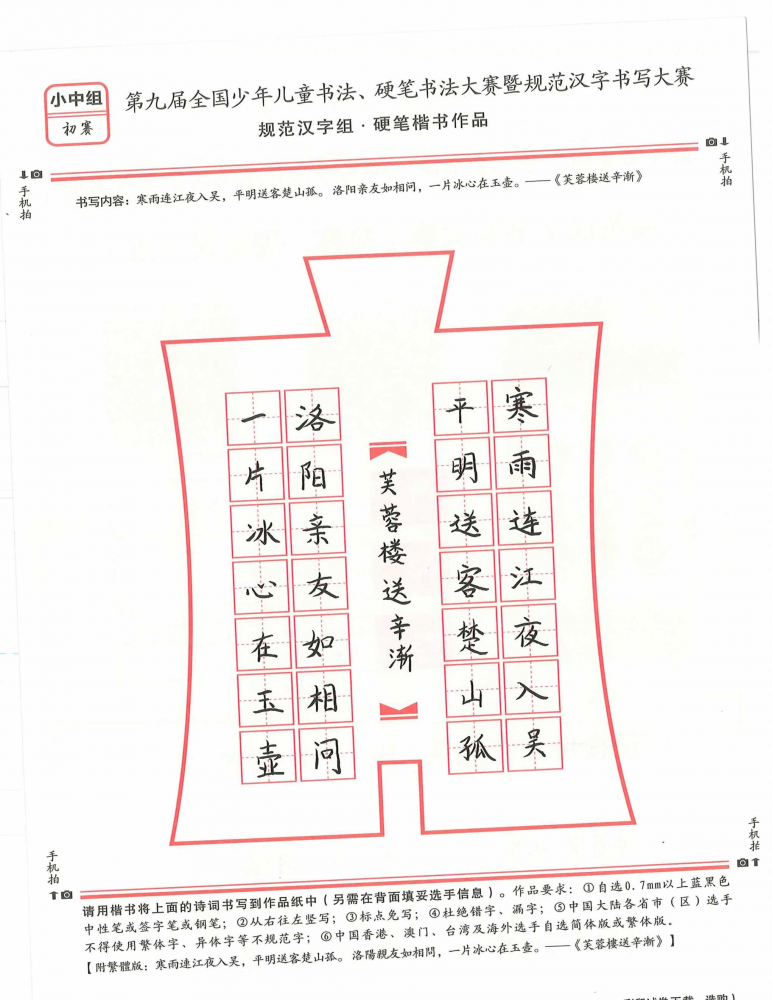 小中组
初赛
第九届全国少年儿童书法、硬笔书法大赛暨规范汉字书写大赛
规范汉字组·硬笔楷书作品
手机拍
手机拍
书写内容：寒雨连江夜入吴，平明送客楚山孤。洛阳亲友如相问，一片冰心在玉壶。——《芙蓉楼送辛渐》
寒雨连江夜入吴
平明送客楚山孤
芙蓉楼送辛渐
洛阳亲友如相问
一片冰心在玉壶
手机拍
手机拍
请用楷书将上面的诗词书写到作品纸中（另需在背面填妥选手信息）。作品要求：①自选0.7mm以上蓝黑色
中性笔或签字笔或钢笔；②从右往左竖写；③标点免写；④杜绝错字、漏字；⑤中国大陆各省市（区）选手
不得使用繁体字、异体字等不规范字；⑥中国香港、澳门、台湾及海外选手自选简体版或繁体版。
【附繁體版：寒雨連江夜入吳，平明送客楚山孤。洛陽親友如相問，一片冰心在玉壺。——《芙蓉樓送辛漸》】